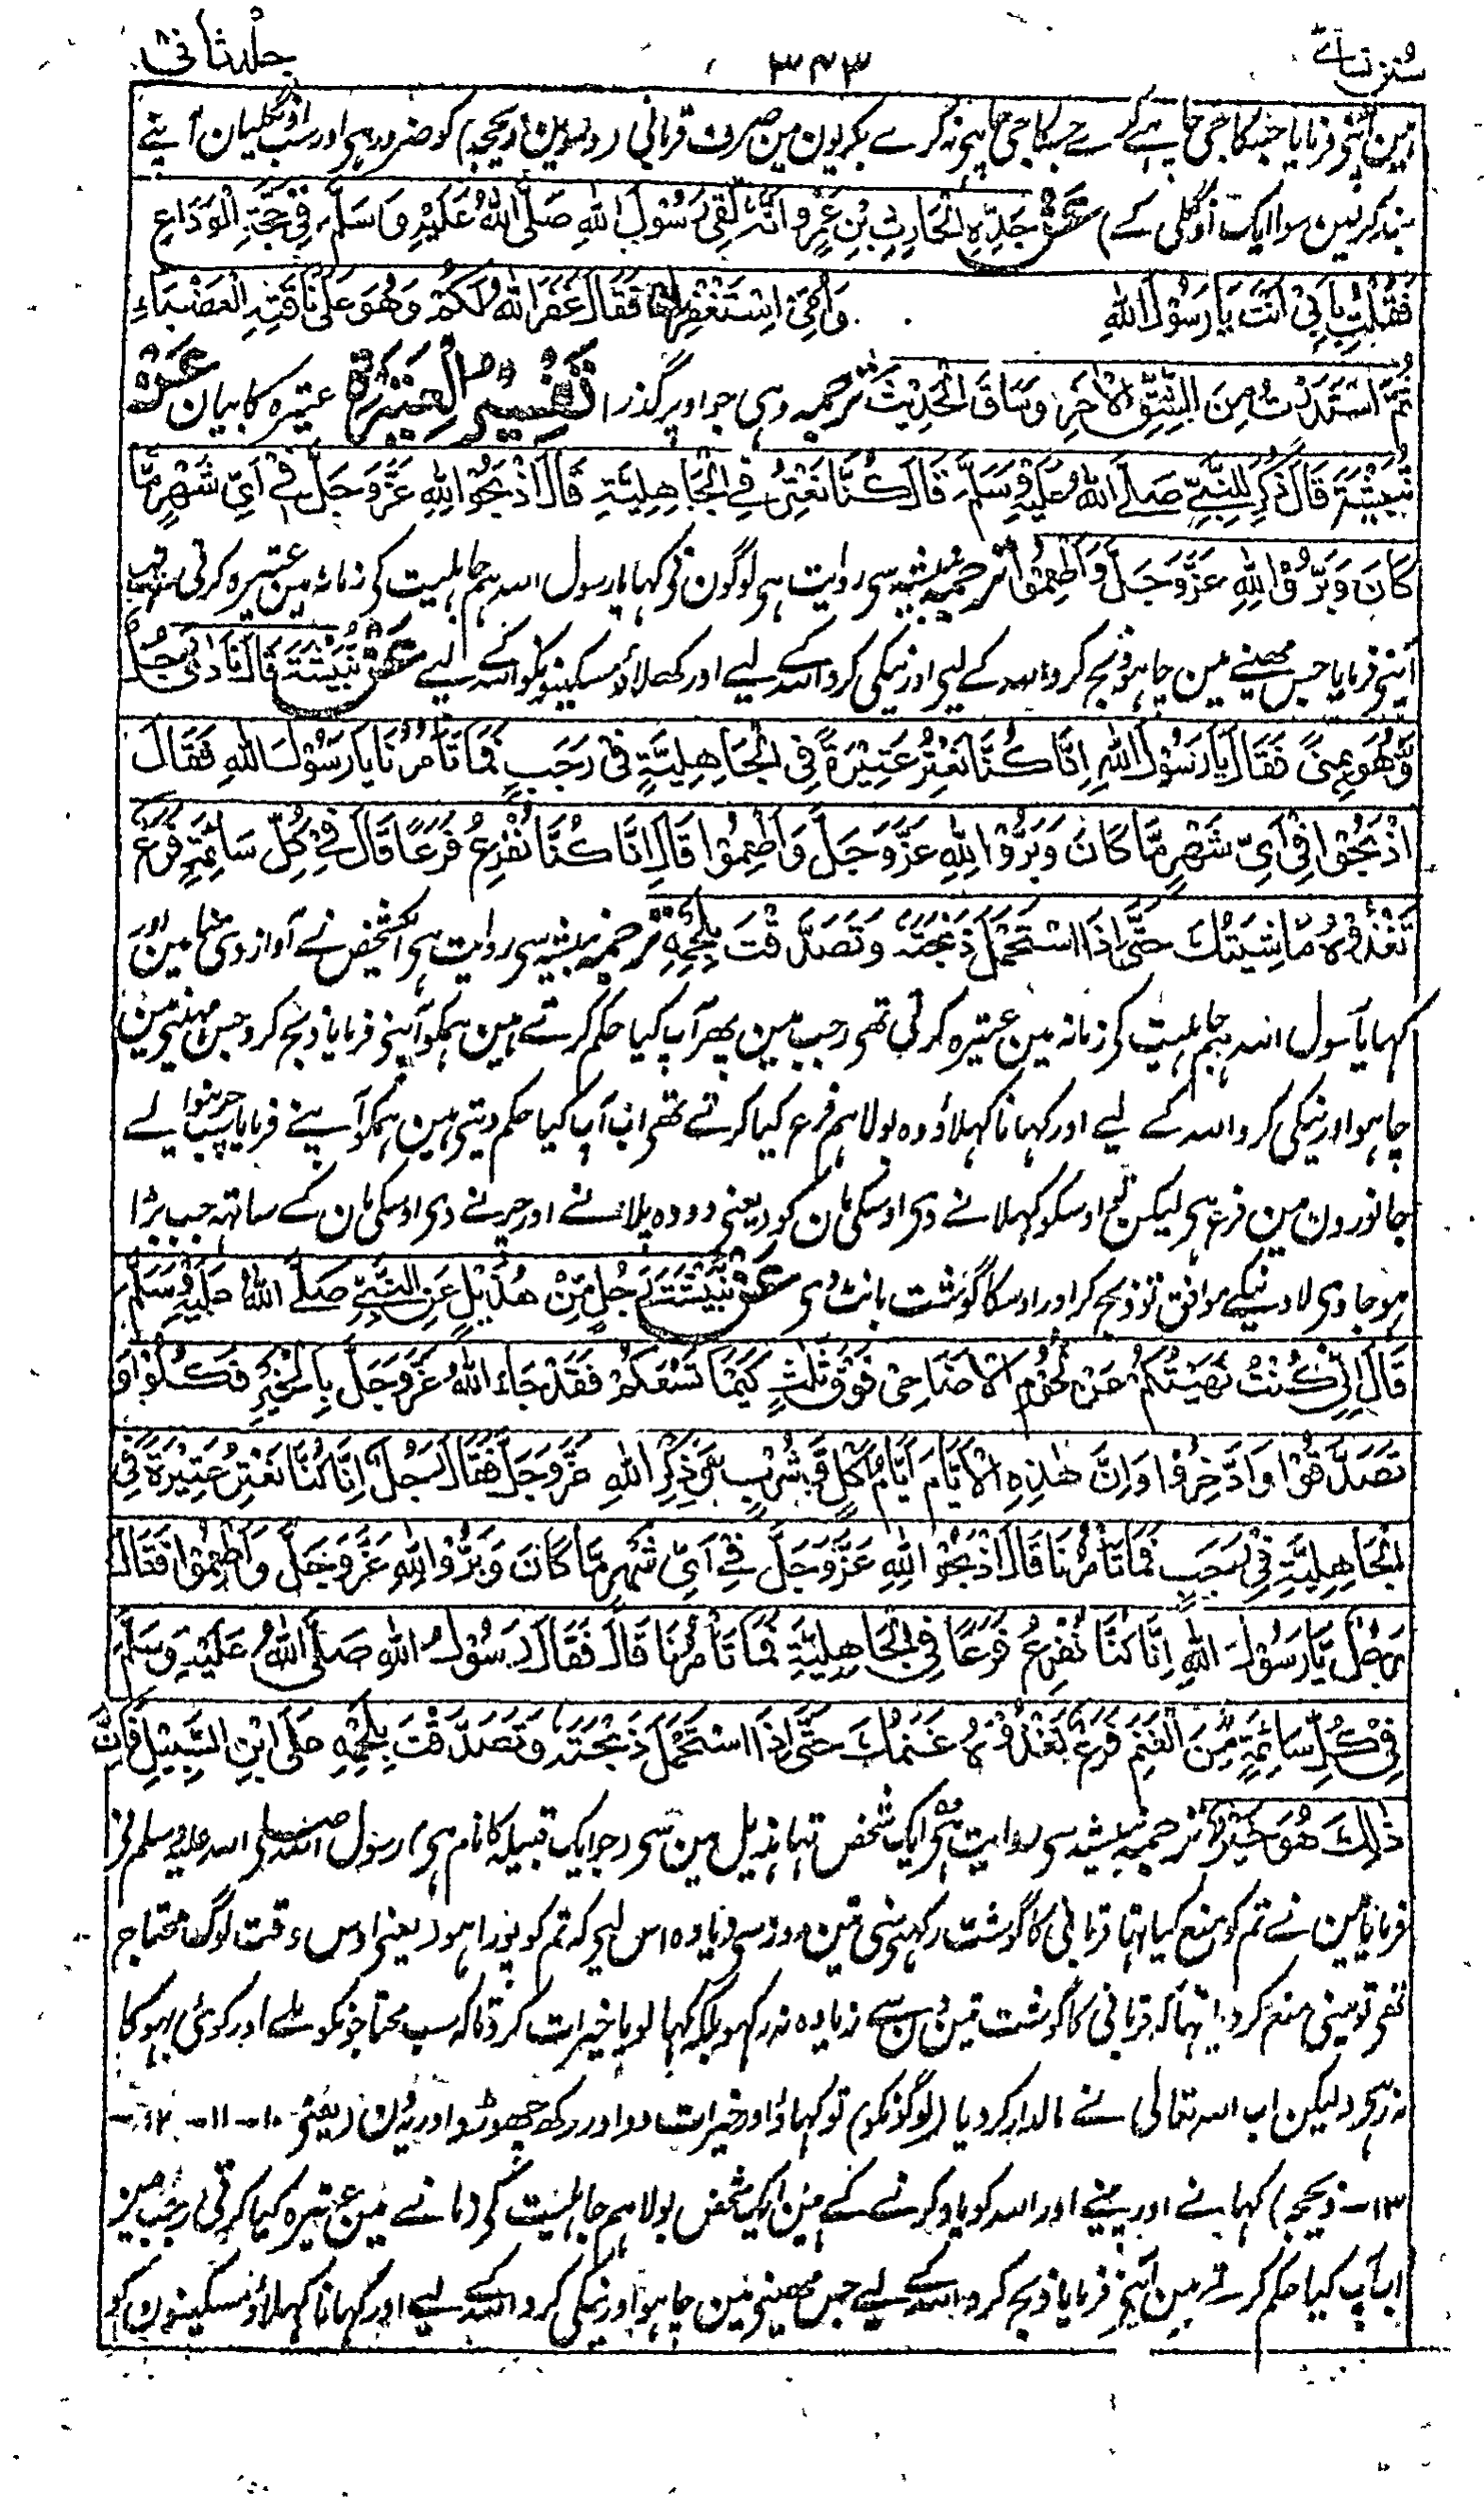 سنن نسائے ۳۴۳ جلد ثانی
مین آپنی فرمایا جسکا جی چاہے کرے جسکا جی چاہی نہ کرے بکریون مین صرف قربانی (دسوین ذیحجہ) کو ضرور ہی اور سب اونگلیان آپنے
بند کرلین سوا ایک اونگلی کے) عَنْ جَدِّہِ الْحَارِثِ بْنِ عَمْرٍو اَنَّہٗ لَقِیَ رَسُوْلَ اللّٰہِ صَلَّی اللّٰہُ عَلَیْہِ وَسَلَّمَ فِیْ حَجَّۃِ الْوَدَاعِ
فَقُلْتُ بِاَبِیْ اَنْتَ یَا رَسُوْلَ اللّٰہِ وَاُمِّیْ اِسْتَغْفِرْ لِیْ فَقَالَ غَفَرَ اللّٰہُ لَکُمْ وَہُوَ عَلٰی نَاقَتِہِ الْعَضْبَاءِ
ثُمَّ اسْتَدَرْتُ مِنَ الشِّقِّ الْاٰخَرِ وَسَاقَ الْحَدِیْثَ ترجمہ وہی جو اوپر گذرا تَفْسِیْرُ الْعَتِیْرَۃِ عتیرہ کا بیان عَنْ
نُبَیْشَۃَ قَالَ ذُکِرَ لِلنَّبِیِّ صَلَّے اللّٰہُ عَلَیْہِ وَسَلَّمَ قَالَ کُنَّا نَعْتِرُ فِی الْجَاہِلِیَّۃِ قَالَ اذْبَحُوْا لِلّٰہِ عَزَّوَجَلَّ فِیْ اَیِّ شَہْرٍ مَّا
کَانَ وَبَرُّوا اللّٰہَ عَزَّوَجَلَّ وَاَطْعِمُوْا ترجمہ نبیشہ سی روایت ہی لوگون نی کہا یا رسول اللہ ہم جاہلیت کی زمانہ مین عتیرہ کرتی تہے
آپنی فرمایا جس مہینے مین چاہو ذبح کرو اللہ کے لیی اور نیکی کرو اللہ کے لیے اور کھلاؤ مسکینونکو اللہ کے لیے عَنْ نُبَیْشَۃَ قَالَ نَادٰی رَجُلٌ
وَّہُوَ بِمِنًی فَقَالَ یَا رَسُوْلَ اللّٰہِ اِنَّا کُنَّا نَعْتِرُ عَتِیْرَۃً فِی الْجَاہِلِیَّۃِ فِیْ رَجَبٍ فَمَا تَاْمُرُنَا یَا رَسُوْلَ اللّٰہِ فَقَالَ
اذْبَحُوْا فِیْ اَیِّ شَہْرٍ مَّا کَانَ وَبَرُّوا اللّٰہَ عَزَّوَجَلَّ وَاَطْعِمُوْا قَالَ اِنَّا کُنَّا نُفْرِعُ فَرَعًا قَالَ فِیْ کُلِّ سَائِمَۃٍ فَرَعٌ
تَغْذُوْہُ مَاشِیَتُکَ حَتّٰی اِذَا اسْتَحْمَلَ ذَبَحْتَہٗ وَتَصَدَّقْتَ بِلَحْمِہٖ ترجمہ نبیشہ سی روایت ہی ایکشخص نے آواز دی منا مین اور
کہا یا رسول اللہ ہم جاہلیت کی زمانہ مین عتیرہ کرتی تھی رجب مین پھر آپ کیا حکم کرتے ہین ہمکو آپنی فرمایا ذبح کرو جس مہینی مین
چاہو اور نیکی کرو اللہ کے لیے اور کہانا کہلاؤ وہ بولا ہم فرع کیا کرتے تھی اب آپ کیا حکم دیتی ہین ہمکو آپنے فرمایا سب چرنیوالے
جانورون مین فرع ہی لیکن تو اوسکو کہلانے دی اوسکی مان کو (یعنی دودہ پلانے اور چرنے دی اوسکی مان کے ساتہہ جب بڑا
ہوجاوی لادنیکے موافق تو ذبح کر اور اوسکا گوشت بانٹ دی عَنْ نُبَیْشَۃَ رَجُلٍ مِّنْ ہُذَیْلٍ عَنِ النَّبِیِّ صَلَّے اللّٰہُ عَلَیْہِ وَسَلَّمَ
قَالَ اِنِّیْ کُنْتُ نَہَیْتُکُمْ عَنْ لُحُوْمِ الْاَضَاحِیْ فَوْقَ ثَلٰثٍ کَیْمَا تَسَعَکُمْ فَقَدْ جَاءَ اللّٰہُ عَزَّوَجَلَّ بِالْخَیْرِ فَکُلُوْا وَ
تَصَدَّقُوْا وَادَّخِرُوْا وَاِنَّ ہٰذِہِ الْاَیَّامَ اَیَّامُ اَکْلٍ وَّشُرْبٍ وَّذِکْرِ اللّٰہِ عَزَّوَجَلَّ فَقَالَ رَجُلٌ اِنَّا کُنَّا نَعْتِرُ عَتِیْرَۃً فِی
الْجَاہِلِیَّۃِ فِیْ رَجَبٍ فَمَا تَاْمُرُنَا قَالَ اذْبَحُوْا لِلّٰہِ عَزَّوَجَلَّ فِیْ اَیِّ شَہْرٍ مَّا کَانَ وَبَرُّوا اللّٰہَ عَزَّوَجَلَّ وَاَطْعِمُوْا فَقَالَ
رَجُلٌ یَّا رَسُوْلَ اللّٰہِ اِنَّا کُنَّا نُفْرِعُ فَرَعًا فِی الْجَاہِلِیَّۃِ فَمَا تَاْمُرُنَا قَالَ فَقَالَ رَسُوْلُ اللّٰہِ صَلَّی اللّٰہُ عَلَیْہِ وَسَلَّمَ
فِیْ کُلِّ سَائِمَۃٍ مِّنَ الْغَنَمِ فَرَعٌ تَغْذُوْہُ غَنَمُکَ حَتّٰی اِذَا اسْتَحْمَلَ ذَبَحْتَہٗ وَتَصَدَّقْتَ بِلَحْمِہٖ عَلَی ابْنِ السَّبِیْلِ فَاِنَّ
ذٰلِکَ ہُوَ خَیْرٌ ترجمہ نبیشہ سی روایت ہی ایک شخص تہا ہذیل مین سی (جو ایک قبیلہ کا نام ہی) رسول اللہ صلی اللہ علیہ وسلم نی
فرمایا مین نے تم کو منع کیا تہا قربانی کا گوشت رکہنی سی تین روز سی زیادہ اس لیی کہ تم کو پورا ہو (یعنی اوس وقت لوگ محتاج
تھی تو مینی منع کردیا تہا کہ قربانی کا گوشت تین دن سے زیادہ نہ رکہو بلکہ کہا لو یا خیرات کردو تاکہ سب محتاجونکو ملے اور کوئی بہوکا
نہ رہی) لیکن اب اللہ تعالی نے مالدار کردیا (لوگونکو) تو کہاؤ اور خیرات دو اور رکھ چھوڑو اور یہ دن (یعنی ۱۰-۱۱-۱۲-
۱۳- ذیحجہ) کہانے اور پینے اور اللہ کو یاد کرنے کے ہین ایکشخص بولا ہم جاہلیت کی زمانے مین عتیرہ کیا کرتی رجب مین
اب آپ کیا حکم کرتے ہین آپنی فرمایا ذبح کرو اللہ کے لیے جس مہینی مین چاہو اور نیکی کرو اللہ کے لیے اور کہانا کہلاؤ مسکینون کو